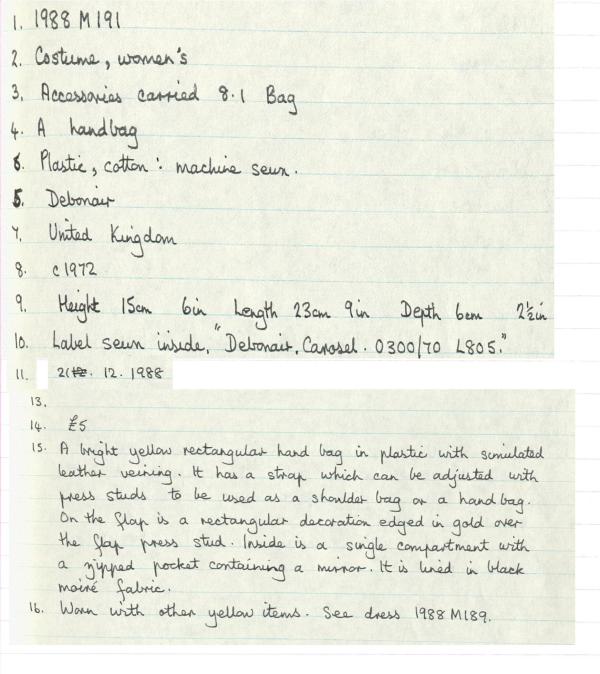 1. 1988 M191
2. Costume, women's
3. Accessories carried 8.1 Bag
4. A handbag
6. Plastic, cotton: machine sewn.
5. Debonair
7. United Kingdom
8. c1972
9. Height 15cm 6in Length 23cm 9in Depth 6cm 2½in
10. Label sewn inside, "Debonair, Carosel. 0300/70 L805."
11. 12. 1988
13.
14. £5
15. A bright yellow rectangular hand bag in plastic with simulated
leather veining. It has a strap which can be adjusted with
press studs to be used as a shoulder bag or a handbag.
On the flap is a rectangular decoration edged in gold over
the flap press stud. Inside is a single compartment with
a zipped pocket containing a mirror. It is lined in black
moiré fabric.
16. Worn with other yellow items. See dress 1988 M189.